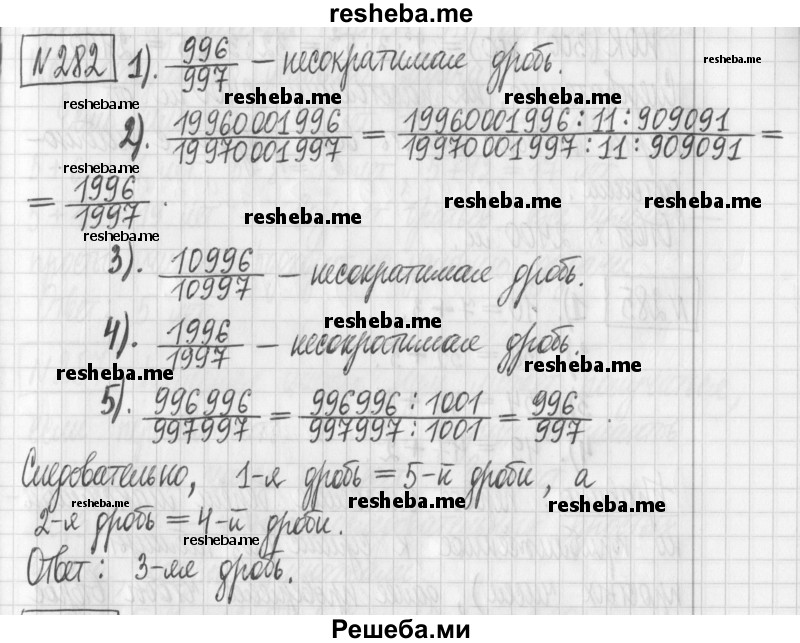 resheba.me
№282 1). 996/997 – несократимая дробь. resheba.me
resheba.me resheba.me resheba.me
2). 19960001996/19970001997 = 19960001996 : 11 : 909091/19970001997 : 11 : 909091 =
resheba.me
= 1996/1997 . resheba.me resheba.me resheba.me
resheba.me
3). 10996/10997 – несократимая дробь.
resheba.me
4). 1996/1997 – несократимая дробь.
resheba.me resheba.me
5). 996996/997997 = 996996 : 1001/997997 : 1001 = 996/997 .
Следовательно, 1-я дробь = 5-й дроби, а
resheba.me resheba.me resheba.me
2-я дробь = 4-й дроби.
resheba.me resheba.me
Ответ: 3-яя дробь.
Решеба.ми